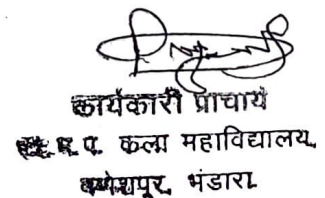 कार्यकारी प्राचार्य
प. कला महाविद्यालय,
गणेशपूर, भंडारा.